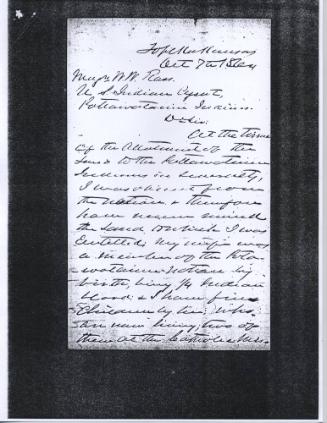 Topeka Kansas
Oct 7th 1864
Majr W. W. Ross.
U. S. Indian Agent,
Pottawatamie Indians.
D Sir:
At the time
of the Allotment of the
Land to the Pottawatamie
Indians in severalty,
I was absent from
the Nation & therefore
have never received
the Land to which I was
Entitled. My wife was
a member of the Potta-
watamie Nation by
birth, being ¼ Indian
blood & I have five
Children by her; who
are now living; two of
them at the Catholic Miss.